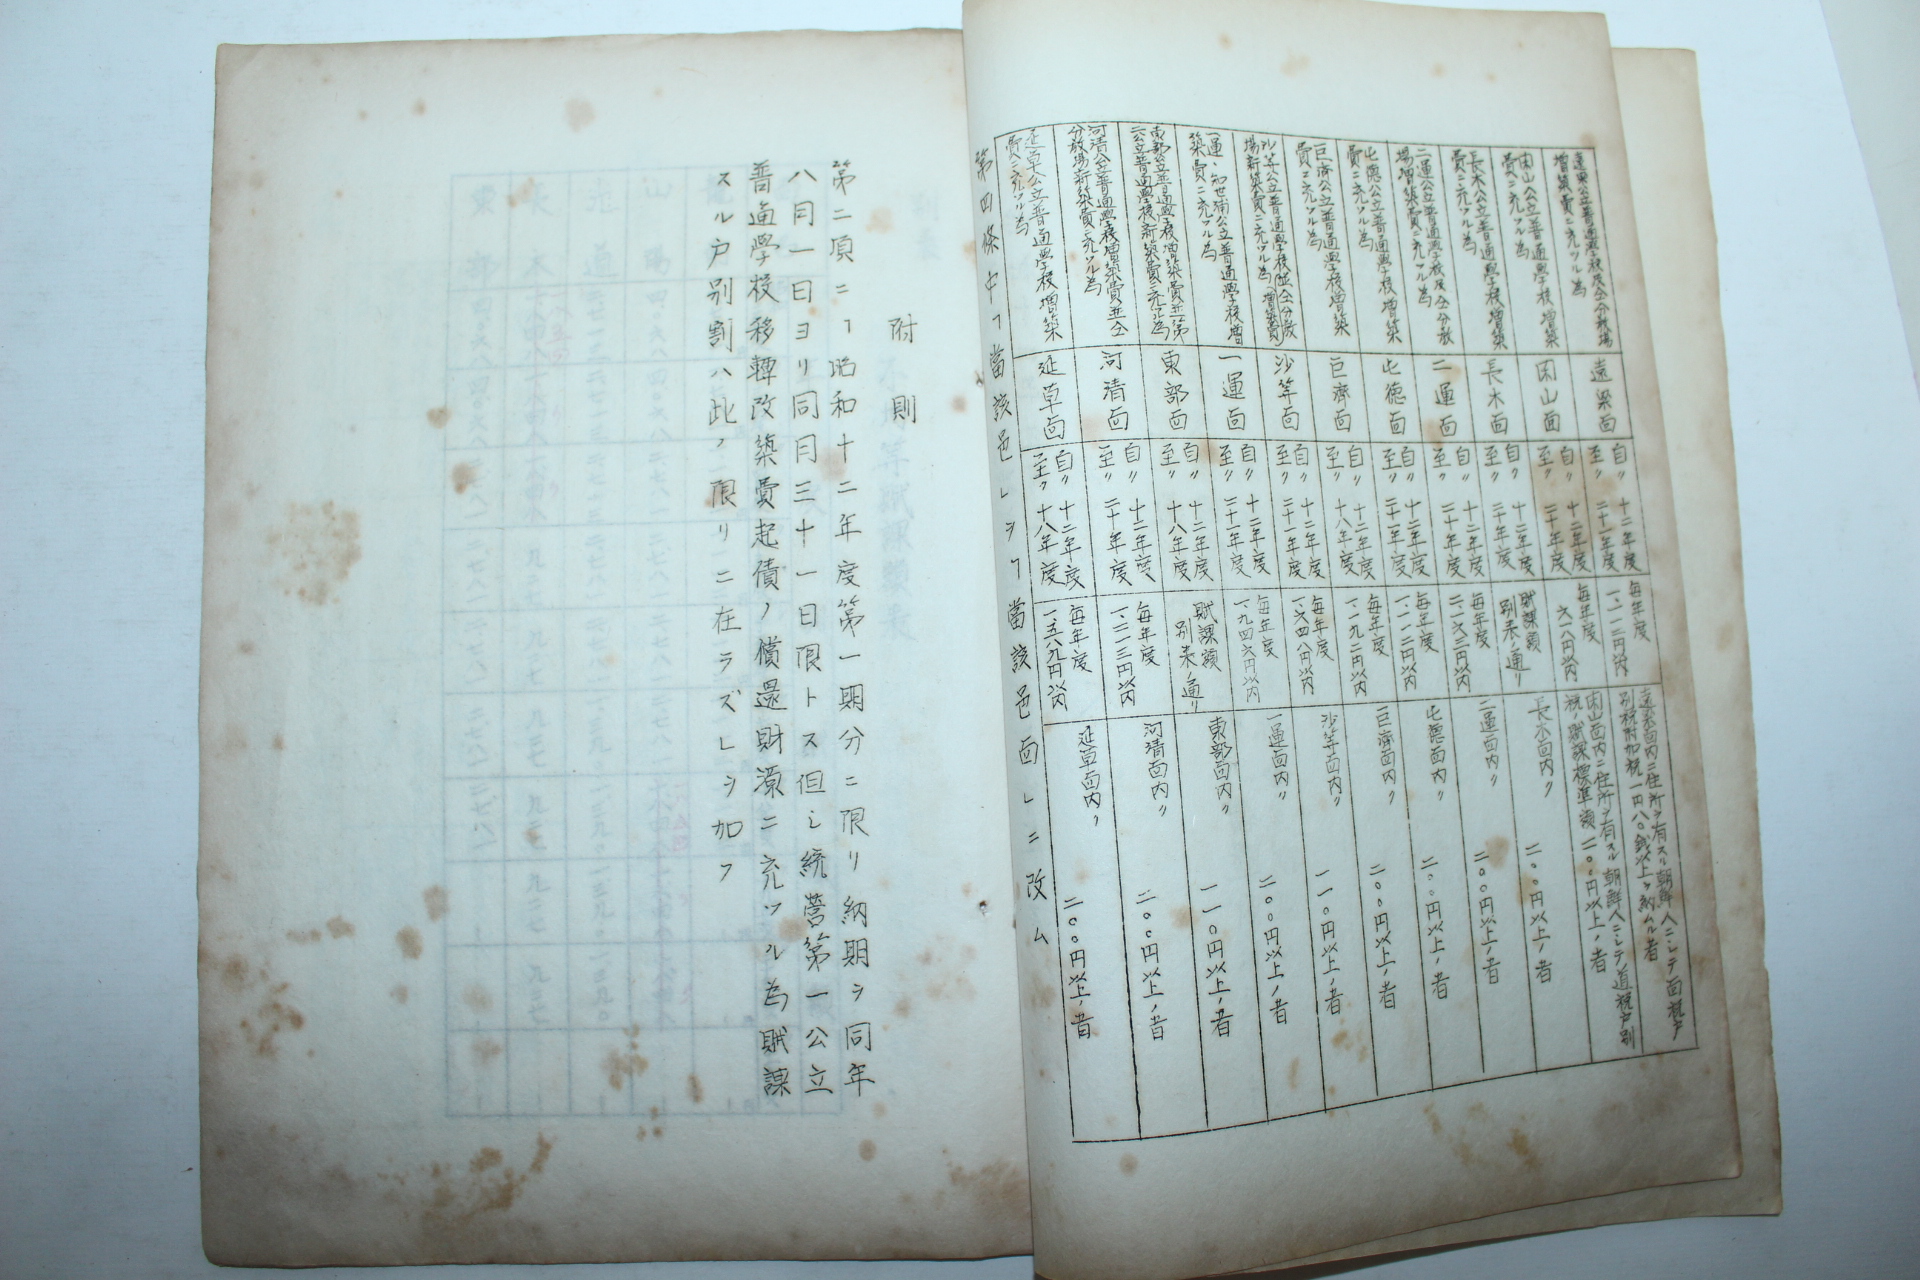 遠梁公立普通學校及仝分教場
増築費ニ充ツル為
遠梁面
自〃 十二年度
至〃 二十一年度
毎年度
一、一一二円以內
遠梁面內ニ住所ヲ有スル朝鮮人ニシテ面税戸
別税附加税一円八〇銭以上ヲ納ムル者
閑山公立普通學校増築
費ニ充ツル為
閑山面
自〃 十二年度
至〃 二十年度
毎年度
六二八円以內
閑山面內ニ住所ヲ有スル朝鮮人ニシテ道税戸別
税ノ賦課標準額二一〇〇円以上ノ者
長木公立普通學校増築
費ニ充ツル為
長木面
自〃 十二年度
至〃 二十年度
賦課額
別表ノ通リ
長木面內〃 二〇〇円以上ノ者
二運公立普通學校及仝分教
場増築費ニ充ツル為
二運面
自〃 十二年度
至〃 二十年度
毎年度
二、〇六三円以內
二運面內〃 二〇〇円以上ノ者
屯徳公立普通學校増築
費ニ充ツル為
屯徳面
自〃 十二年度
至〃 二十一年度
毎年度
一、一一二円以內
屯徳面內〃 二〇〇円以上ノ者
巨濟公立普通學校増築
費ニ充ツル為
巨濟面
自〃 十二年度
至〃 十八年度
毎年度
一、一九二円以內
巨濟面內〃 二〇〇円以上ノ者
沙等公立普通學校並仝分教
場新築費ニ充ツル為
沙等面
自〃 十二年度
至〃 二十一年度
毎年度
一、六四八円以內
沙等面內〃 一一〇円以上ノ者
一運、知世浦公立普通學校増
築費ニ充ツル為
一運面
自〃 十二年度
至〃 二十一年度
毎年度
一、九四六円以內
一運面內〃 二〇〇円以上ノ者
東部公立普通學校増築費並第
二公立普通學校新築費ニ充ツル為
東部面
自〃 十二年度
至〃 十八年度
賦課額
別表ノ通リ
東部面內〃 一一〇円以上ノ者
河清公立普通學校増築費並仝
分教場新築費ニ充ツル為
河清面
自〃 十二年度
至〃 二十年度
毎年度
一、二一三円以內
河清面內〃 二〇〇円以上ノ者
延草公立普通學校増築
費ニ充ツル為
延草面
自〃 十二年度
至〃 十八年度
毎年度
一、五八九円以內
延草面內〃 二〇〇円以上ノ者
第四條中「當該邑」ヲ「當該邑面」ニ改ム
附則
第二項ニ「昭和十二年度第一期分ニ限リ納期ヲ同年
八月一日ヨリ同月三十一日限トス但シ統營第一公立
普通學校移轉改築費起債ノ償還財源ニ充ツル為賦課
スル戸別割ハ此ノ限リニ在ラズ」ヲ加フ